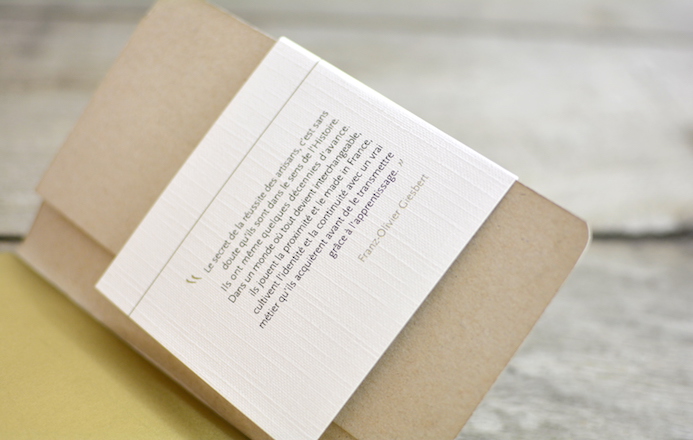 “ Le secret de la réussite des artisans, c'est sans
doute qu'ils sont dans le sens de l'Histoire.
Ils ont même quelques décennies d'avance.
Dans un monde où tout devient interchangeable,
ils jouent la proximité et le made in France,
cultivent l'identité et la continuité avec un vrai
métier qu'ils acquièrent avant de le transmettre
grâce à l'apprentissage. ”
Franz-Olivier Giesbert